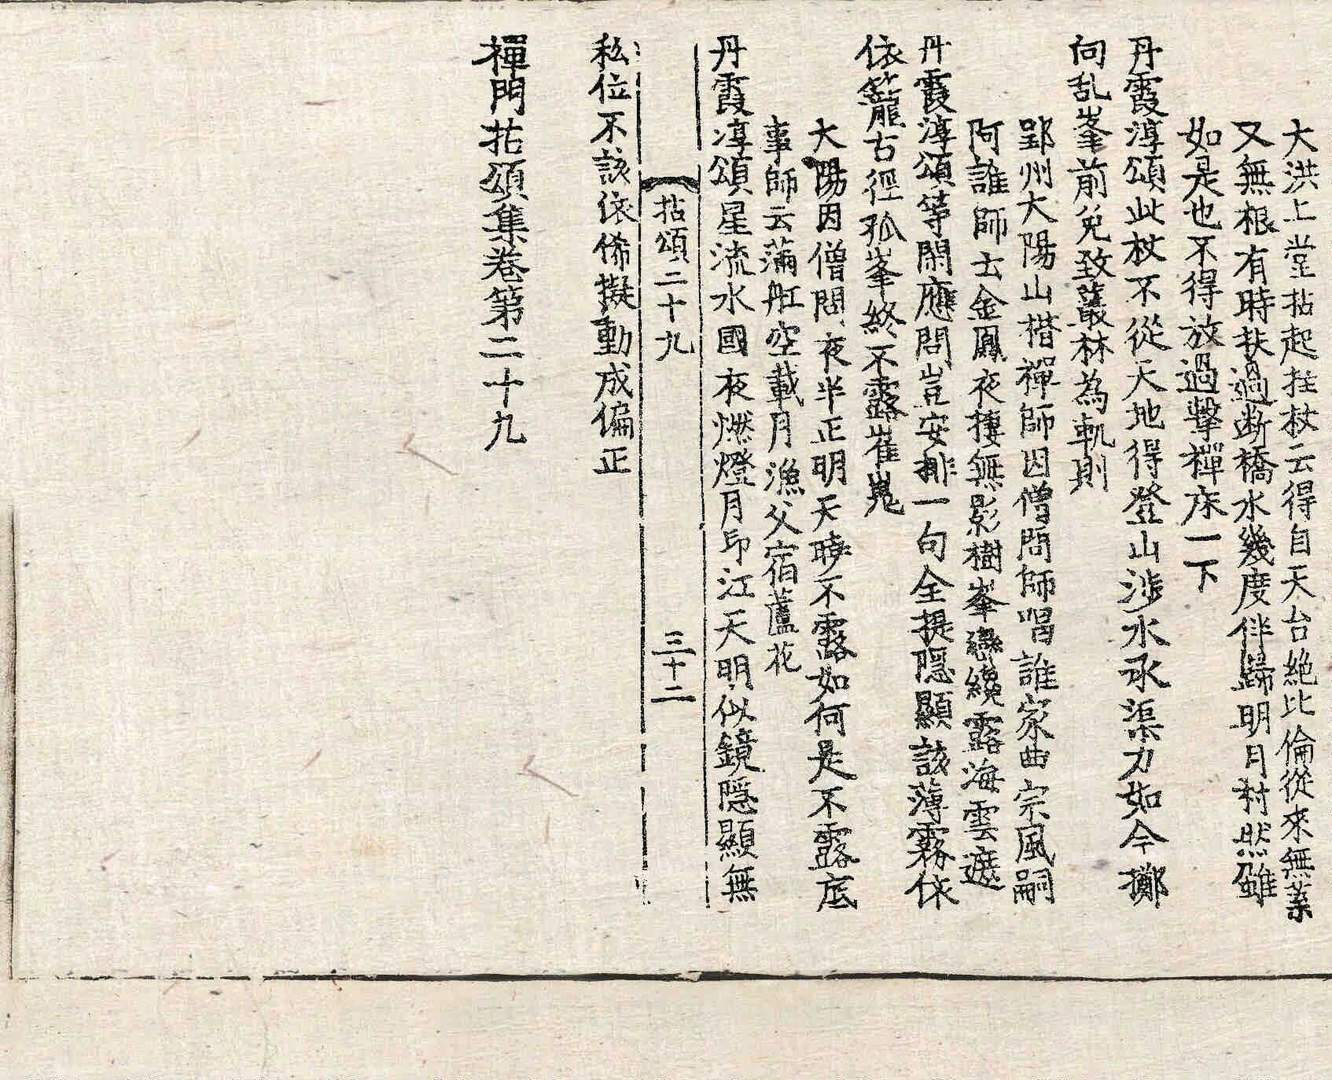 大洪上堂拈起拄杖云得自天台絶比倫從來無葉
又無根有時扶過断橋水幾度伴歸明月村然雖
如是也不得放過擊禪床一下
丹霞淳頌此杖不從天地得登山涉水承渠力如今擲
向乱峯前免致叢林為軌則
郢州大陽山楷禪師因僧問師唱誰家曲宗風嗣
阿誰師云金鳳夜捿無影樹峯巒纔露海雲遮
丹霞淳頌等閑應問豈安排一句全提隠顯該薄霧依
依籠古徑孤峯終不露崔嵬
大陽因僧問夜半正明天曉不露如何是不露底
事師云滿舡空載月漁父宿蘆花
丹霞淳頌星流水國夜燃燈月印江天明似鏡隠顯無
拈頌二十九 三十二
私位不該依俙擬動成偏正
禪門拈頌集卷第二十九